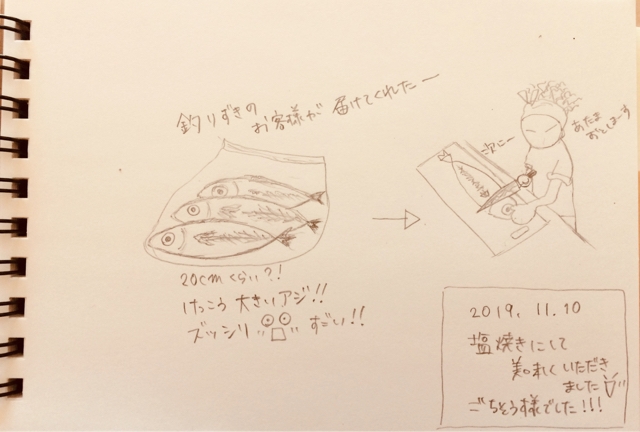 釣りずきの
お客様が 届けてくれたー
20cmくらい?!
けっこう 大きいアジ!!
ズッシリ すごい!!
あたま
おとしまーす
2019. 11. 10
塩焼きにして
美味しくいただき
ました
ごちそう様でした!!!